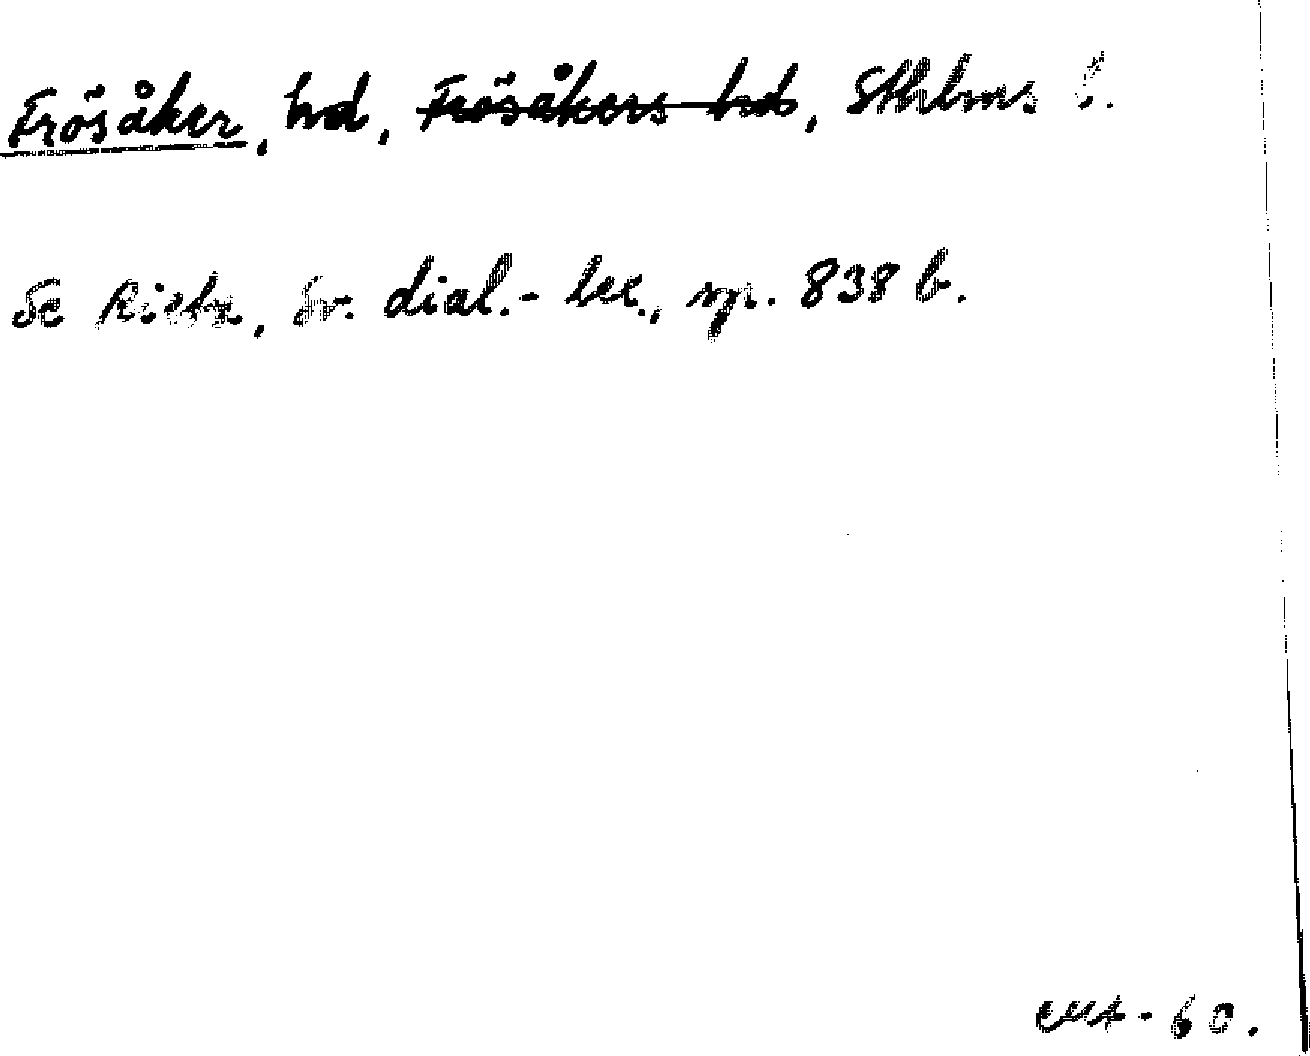 Frösåker, hd, Frösåkers hd, Sthlms l.
Se Rietz, Sv. dial.-lex., sp. 838 b.
-60.